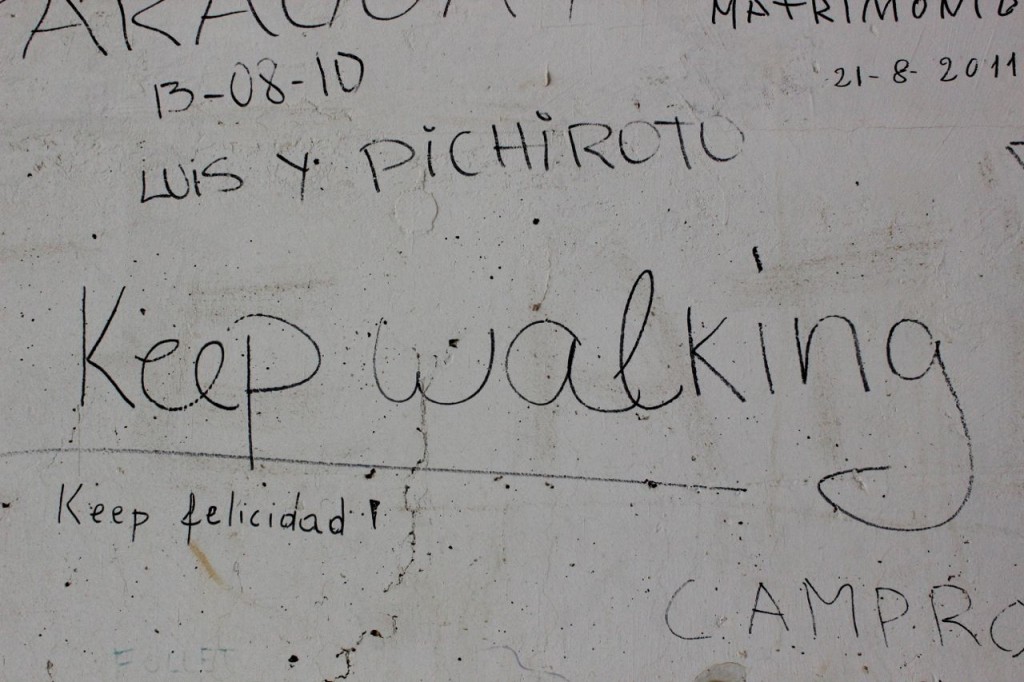 MATRIMONIO
13-08-10
21-8-2011
LUIS Y PICHIROTO
Keep walking
Keep felicidad!
CAMPRO
FOLLET